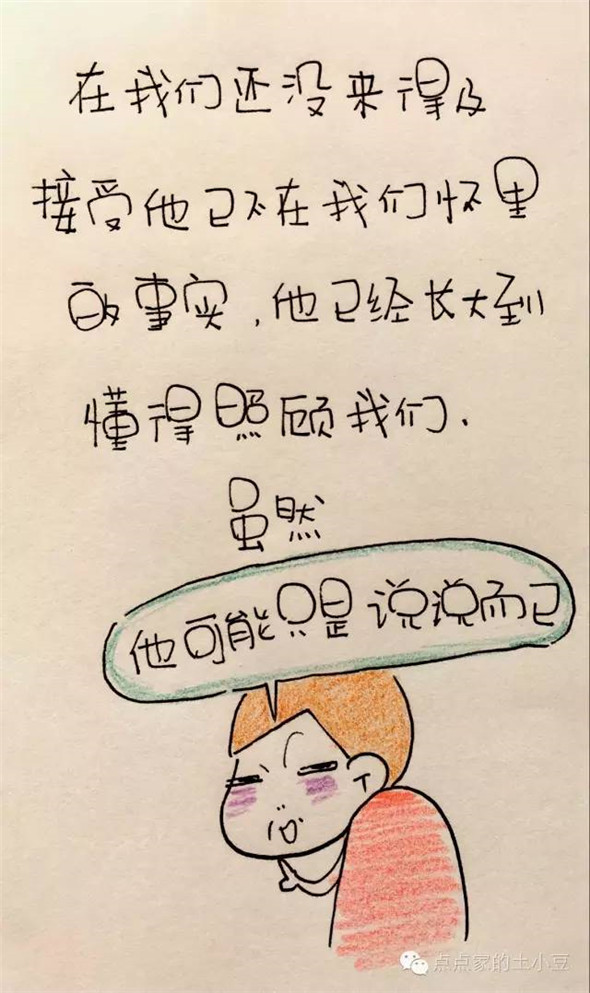 在我们还没来得及
接受他已不在我们怀里
的事实,他已经长大到
懂得照顾我们.
虽然
他可能只是说说而已
点点家的土小豆